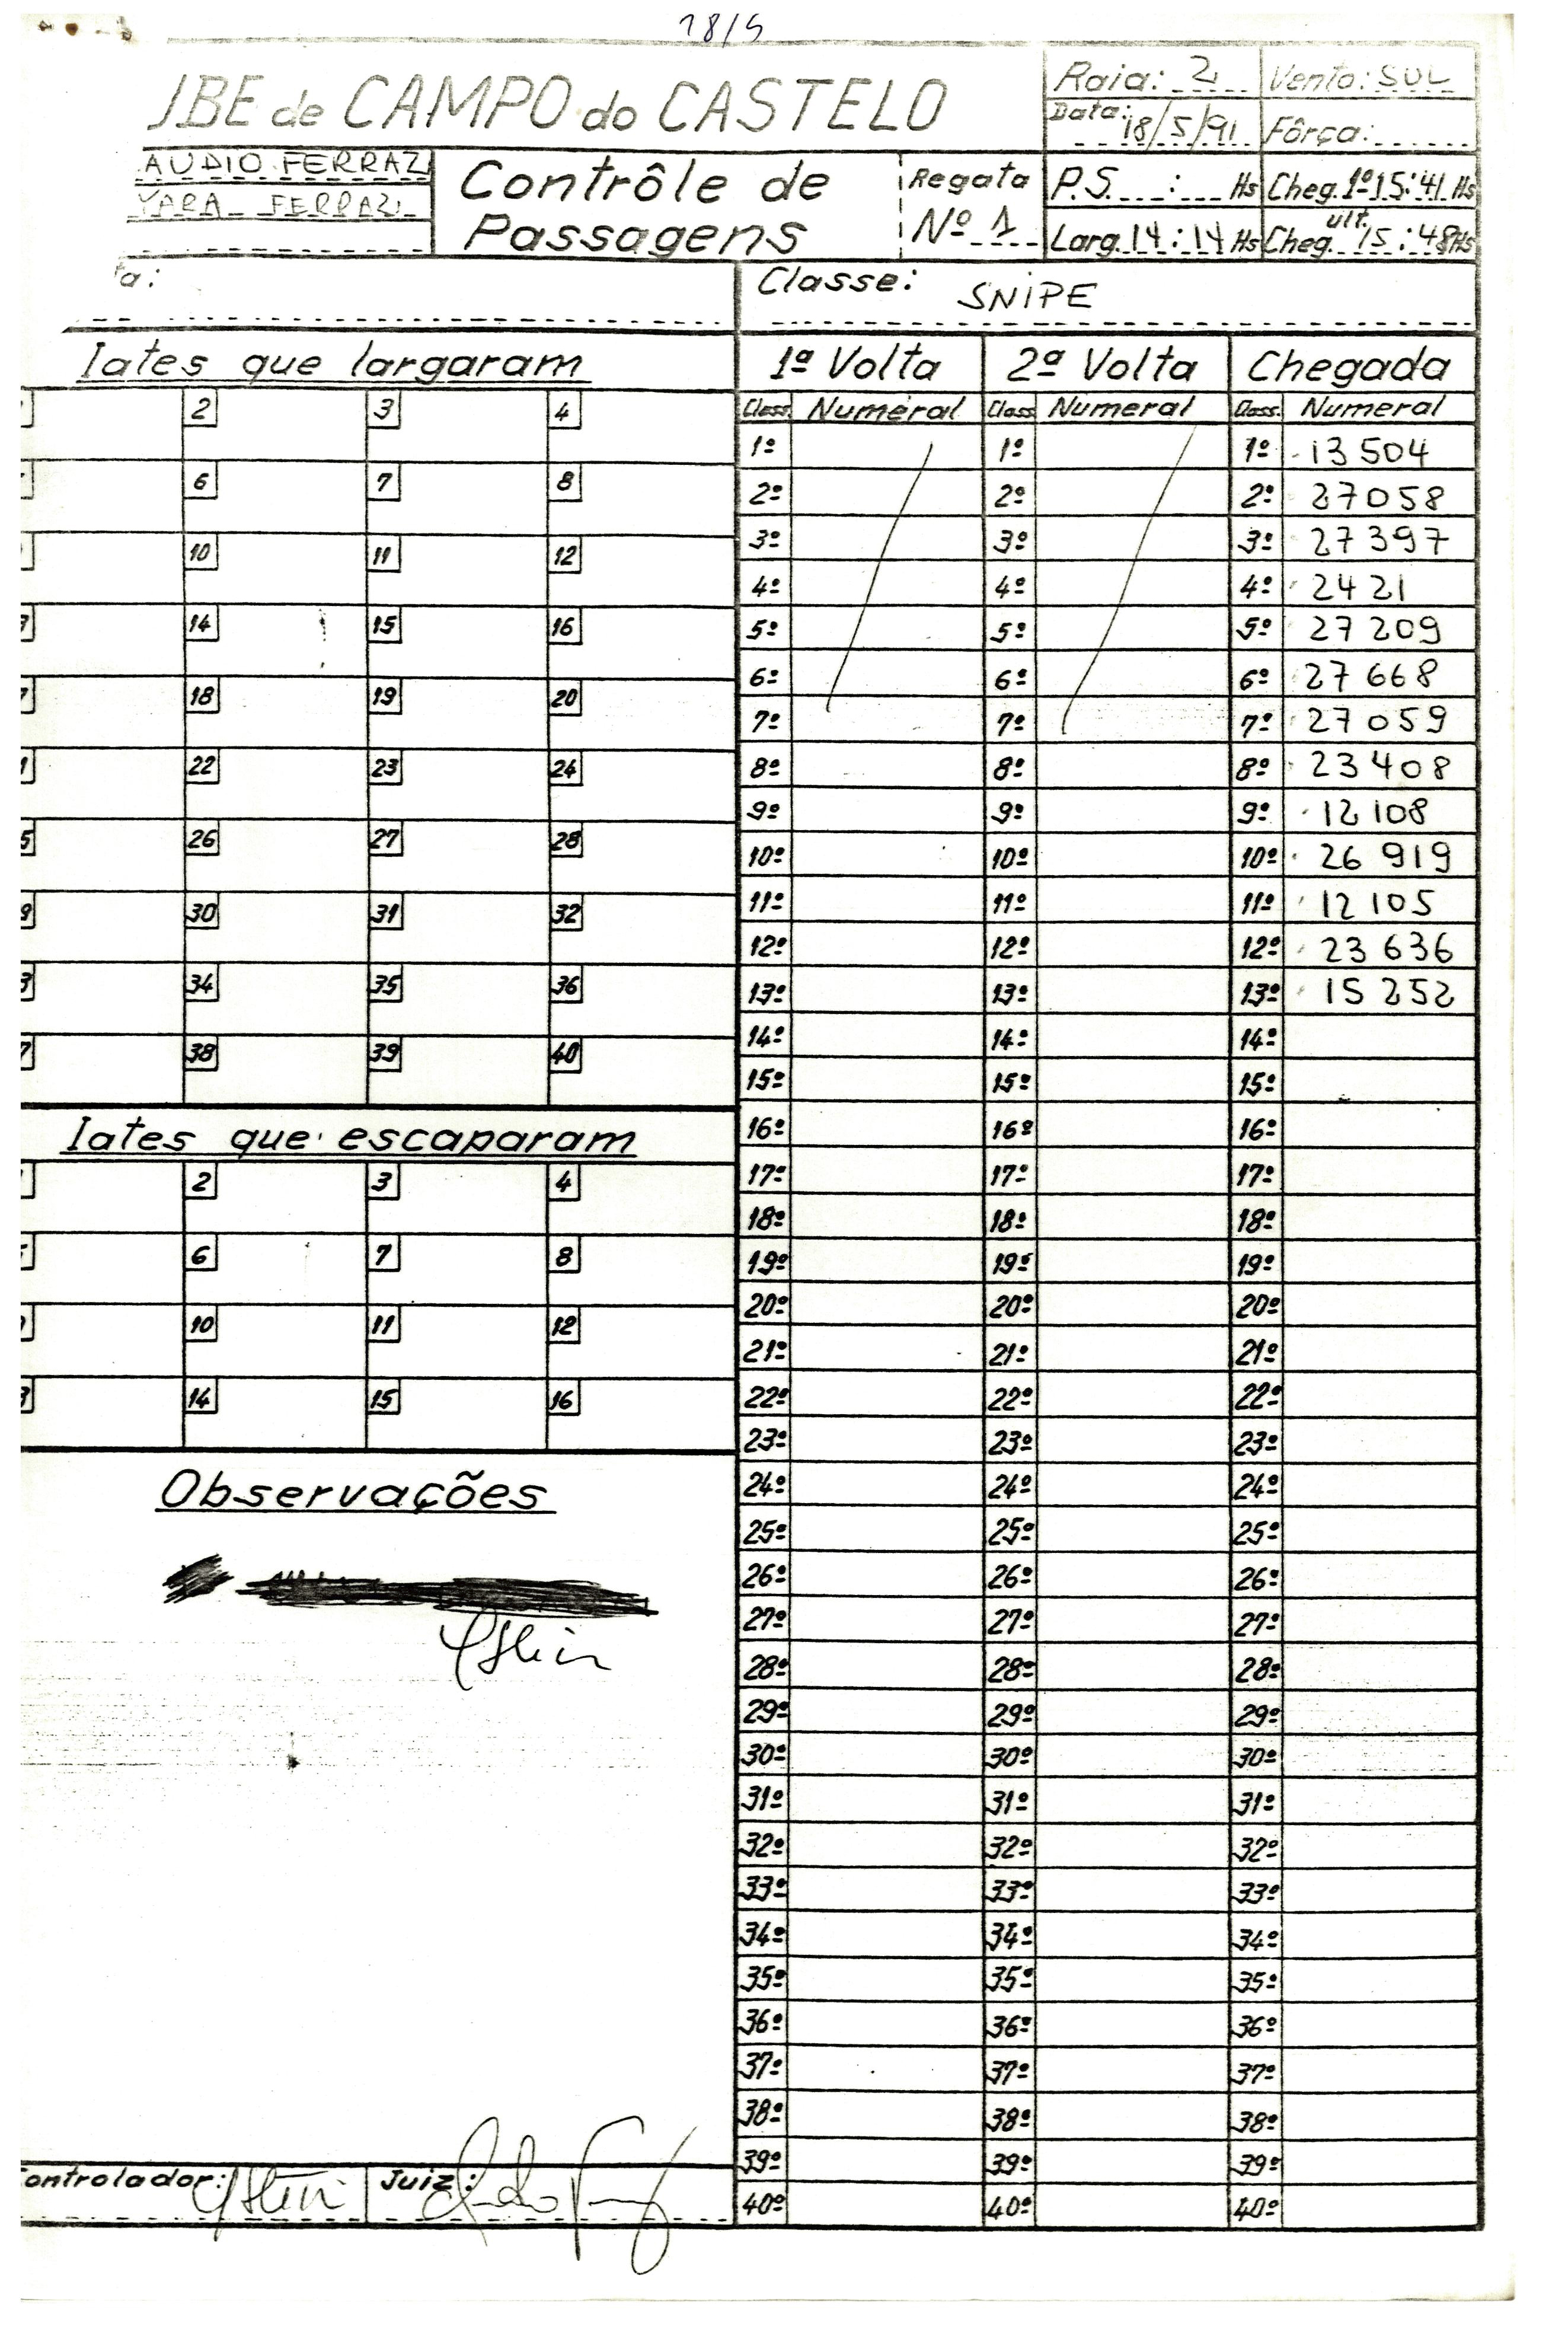 18/5
JBE de CAMPO do CASTELO
Raia: 2 Vento: SUL
Data: 18/5/91 Fôrça:
AUDIO FERRAZ
YARA FERRAZ
Contrôle de Passagens
Regata Nº 1
P.S. : Hs Cheg. 1º 15:41 Hs
Larg. 14:14 Hs últ. Cheg. 15:48 Hs
ta:
Classe: SNIPE
Iates que largaram
2 3 4
6 7 8
10 11 12
14 15 16
18 19 20
22 23 24
26 27 28
30 31 32
34 35 36
38 39 40
Iates que escaparam
2 3 4
6 7 8
10 11 12
14 15 16
Observações
1ª Volta 2ª Volta Chegada
Class. Numeral Class. Numeral Class. Numeral
1º 1º 1º 13504
2º 2º 2º 27058
3º 3º 3º 27397
4º 4º 4º 2421
5º 5º 5º 27209
6º 6º 6º 27668
7º 7º 7º 27059
8º 8º 8º 23408
9º 9º 9º 12108
10º 10º 10º 26919
11º 11º 11º 12105
12º 12º 12º 23636
13º 13º 13º 15252
14º 14º 14º
15º 15º 15º
16º 16º 16º
17º 17º 17º
18º 18º 18º
19º 19º 19º
20º 20º 20º
21º 21º 21º
22º 22º 22º
23º 23º 23º
24º 24º 24º
25º 25º 25º
26º 26º 26º
27º 27º 27º
28º 28º 28º
29º 29º 29º
30º 30º 30º
31º 31º 31º
32º 32º 32º
33º 33º 33º
34º 34º 34º
35º 35º 35º
36º 36º 36º
37º 37º 37º
38º 38º 38º
39º 39º 39º
40º 40º 40º
ontrolador: Juiz: